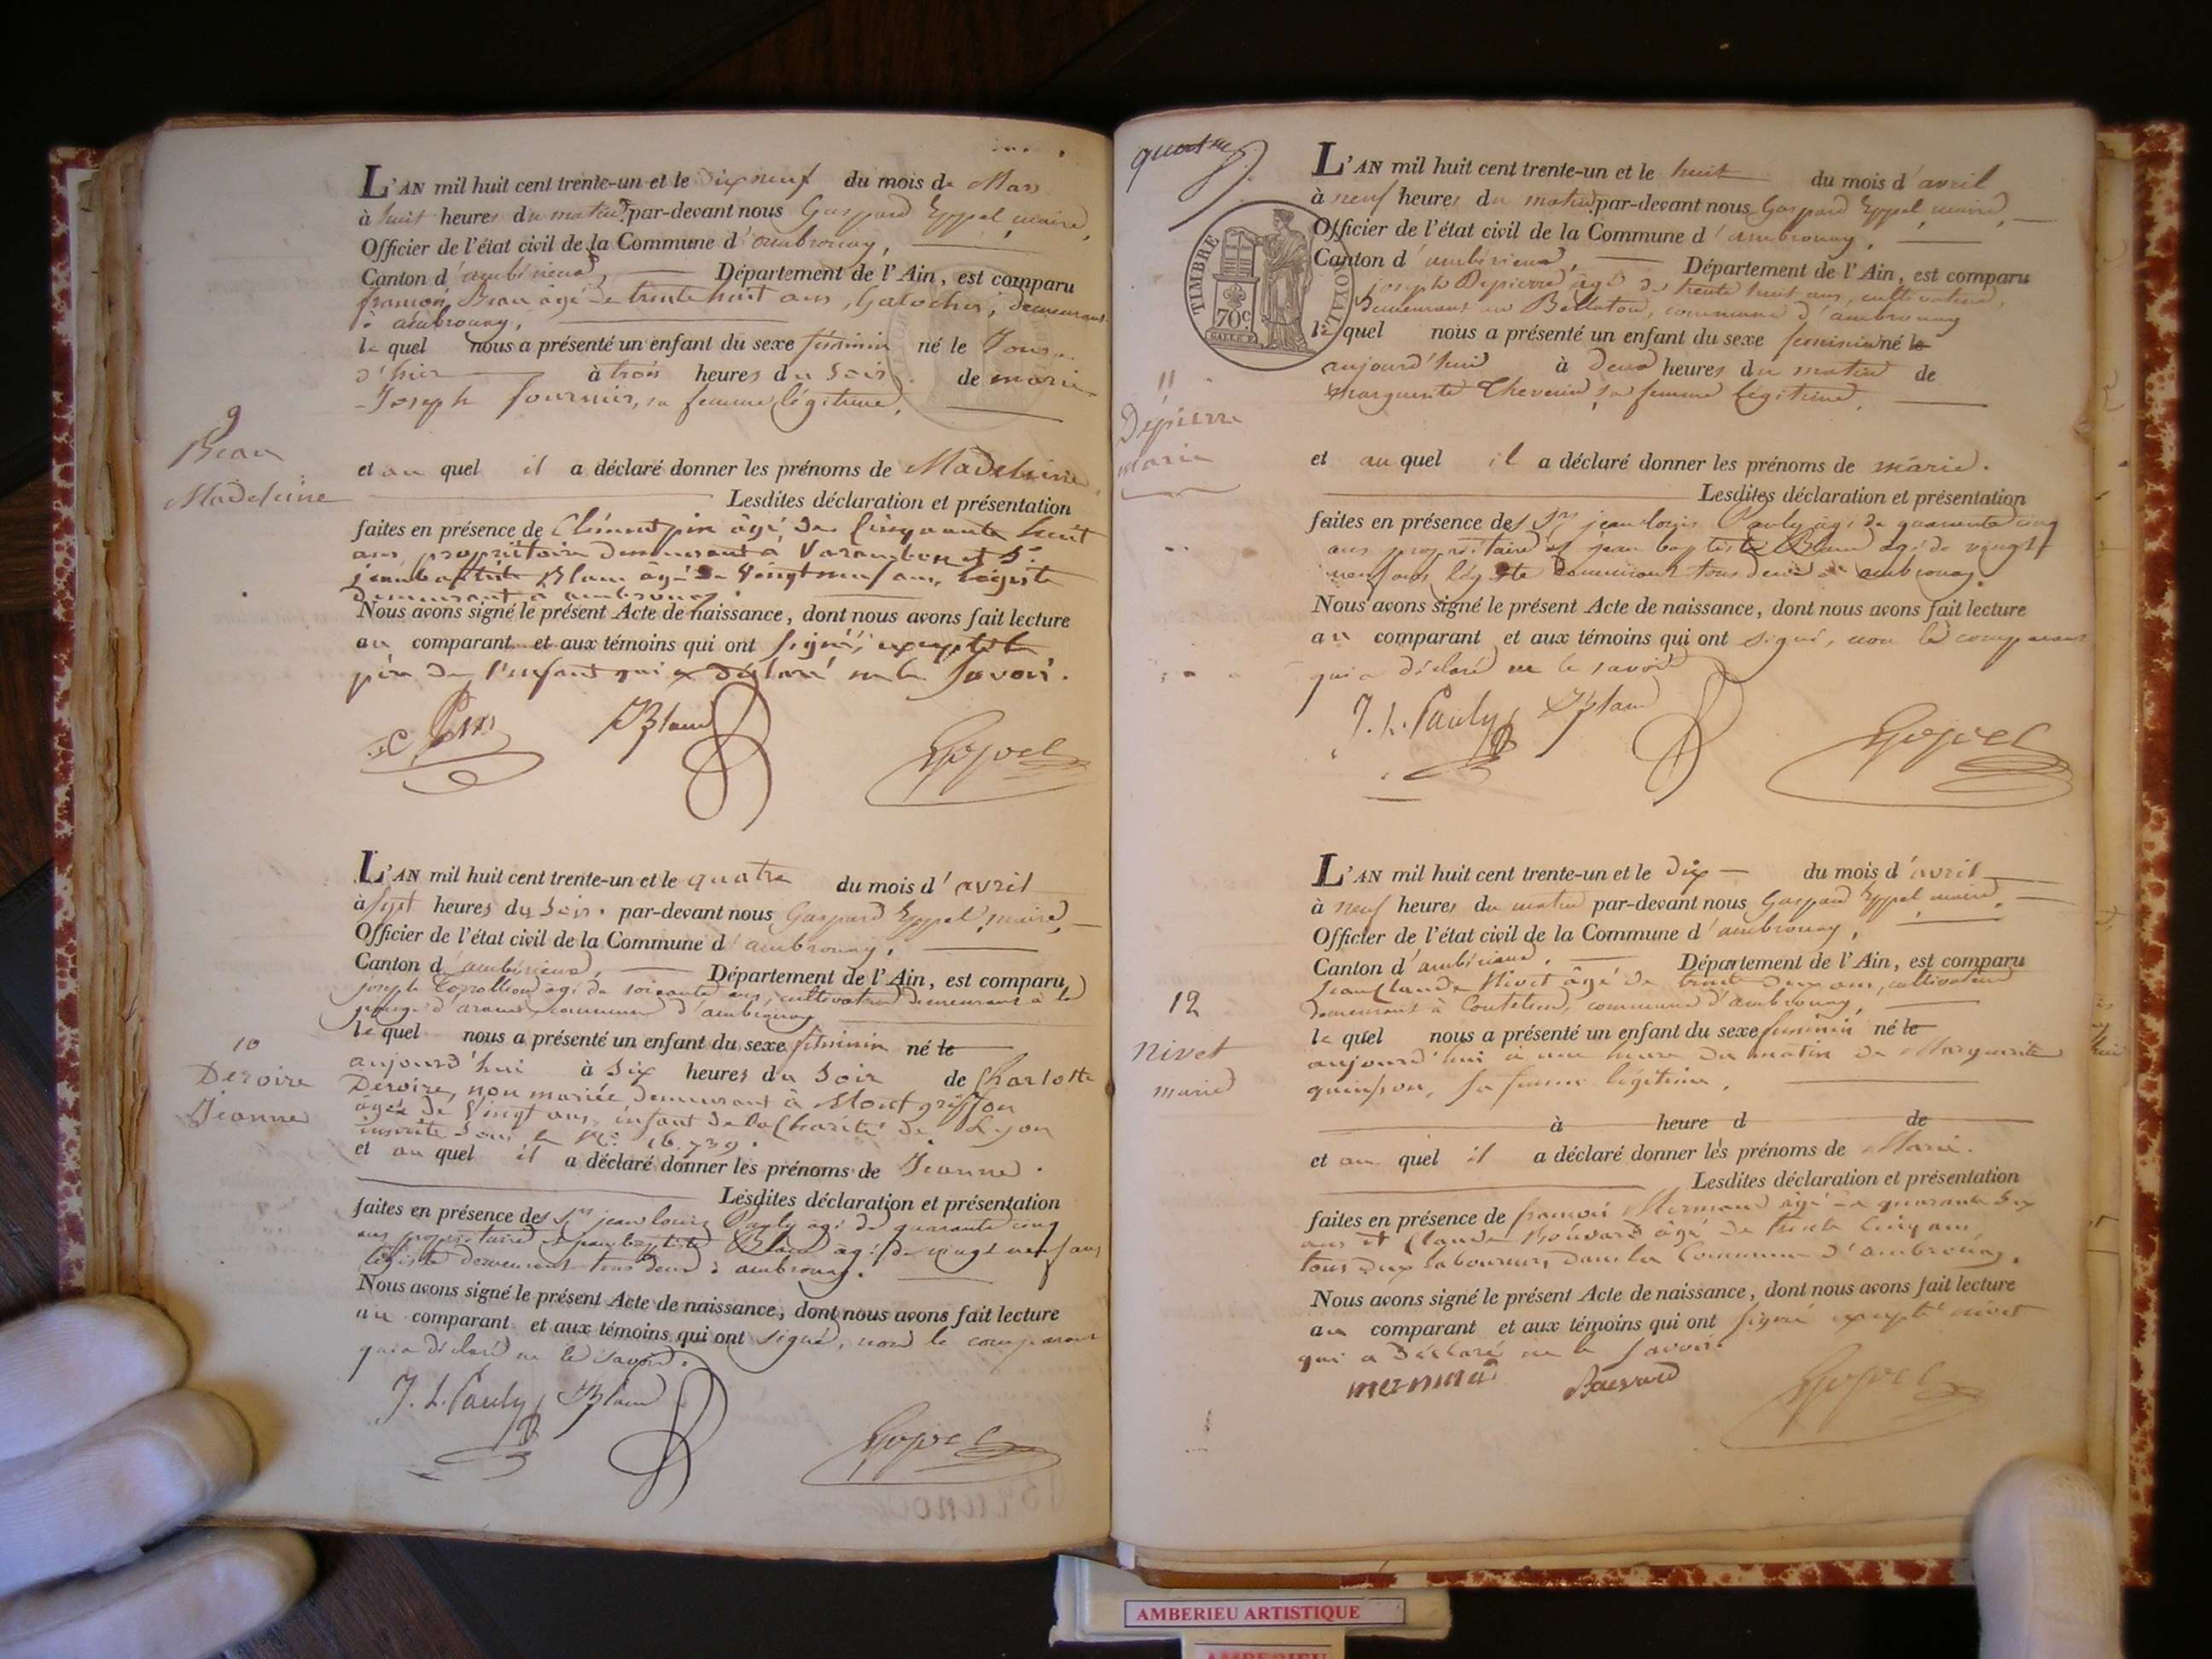 L'AN mil huit cent trente-un et le dix neuf du mois de Mars
à huit heures du matin par-devant nous Gaspard Eppel, maire,
Officier de l'état civil de la Commune d'ambronay,
Canton d'ambérieux, Département de l'Ain, est comparu
françois Beau âgé de trente huit ans, Galochier, demeurant
à ambronay,
le quel nous a présenté un enfant du sexe féminin né le Jour
d'hier à trois heures du Soir de marie
Joseph fournier, sa femme légitime,
9
Beau
Madeleine
et au quel il a déclaré donner les prénoms de Madeleine
Lesdites déclaration et présentation
faites en présence de Clément pin âgé de Cinquante huit
ans propriétaire demeurant à Varambon et Sr
jean baptiste Blanc âgé de Vingt neuf ans, légiste
demeurant à ambronay.
Nous avons signé le présent Acte de naissance, dont nous avons fait lecture
au comparant et aux témoins qui ont signé, excepté le
père de l'enfant qui a déclaré ne le savoir.
Eppel
L'AN mil huit cent trente-un et le quatre du mois d'avril
à Sept heures du Soir par-devant nous Gaspard Eppel, maire,
Officier de l'état civil de la Commune d'ambronay,
Canton d'ambérieux, Département de l'Ain, est comparu
joseph âgé de soixante ans, cultivateur demeurant à la
commune d'ambronay
le quel nous a présenté un enfant du sexe féminin né le
aujourd'hui à Six heures du Soir de Charlotte
10
Deroire
Jeanne
Deroire, non mariée demeurant à Montgriffon
âgée de Vingt ans, enfant de la Charité de Lyon
inscrite sous le No. 16.739.
et au quel il a déclaré donner les prénoms de Jeanne.
Lesdites déclaration et présentation
faites en présence des Srs jean louis Pauly âgé de quarante cinq
ans propriétaire et jean baptiste Blanc âgé de vingt neuf ans
légiste demeurant tous deux à ambronay.
Nous avons signé le présent Acte de naissance, dont nous avons fait lecture
au comparant et aux témoins qui ont signé, non le comparant
qui a déclaré ne le savoir.
J. L. Pauly Blanc
Eppel
quatre
TIMBRE ROYAL
70c
L'AN mil huit cent trente-un et le huit du mois d'avril
à neuf heures du matin par-devant nous Gaspard Eppel, maire,
Officier de l'état civil de la Commune d'ambronay,
Canton d'ambérieux, Département de l'Ain, est comparu
joseph Depierre âgé de trente huit ans, cultivateur,
demeurant au commune d'ambronay
le quel nous a présenté un enfant du sexe feminin né le
aujourd'hui à deux heures du matin de
marguerite Thevenin, sa femme légitime,
11
Dépierre
marie
et au quel il a déclaré donner les prénoms de marie.
Lesdites déclaration et présentation
faites en présence des Srs jean louis Pauly âgé de quarante cinq
ans propriétaire et jean baptiste Blanc âgé de vingt
neuf ans légiste demeurant tous deux à ambronay.
Nous avons signé le présent Acte de naissance, dont nous avons fait lecture
au comparant et aux témoins qui ont signé, non le comparant
qui a déclaré ne le savoir
J. L. Pauly Blanc
Eppel
L'AN mil huit cent trente-un et le Dix du mois d'avril
à neuf heures du matin par-devant nous Gaspard Eppel, maire,
Officier de l'état civil de la Commune d'ambronay,
Canton d'ambérieux, Département de l'Ain, est comparu
Jean Claude Nivet âgé de trente deux ans, cultivateur
demeurant à commune d'ambronay,
12
Nivet
marie
le quel nous a présenté un enfant du sexe feminin né le
aujourd'hui à une heure du matin de Marguerite
quinson, sa femme légitime,
à heure d de
et au quel il a déclaré donner les prénoms de Marie.
Lesdites déclaration et présentation
faites en présence de françois Mermand âgé de quarante six
ans et Claude Bouvard âgé de trente cinq ans
tous deux laboureurs dans la Commune d'ambronay.
Nous avons signé le présent Acte de naissance, dont nous avons fait lecture
au comparant et aux témoins qui ont signé excepté nivet
qui a déclaré ne le savoir.
Eppel
AMBERIEU ARTISTIQUE
AMBERIEU